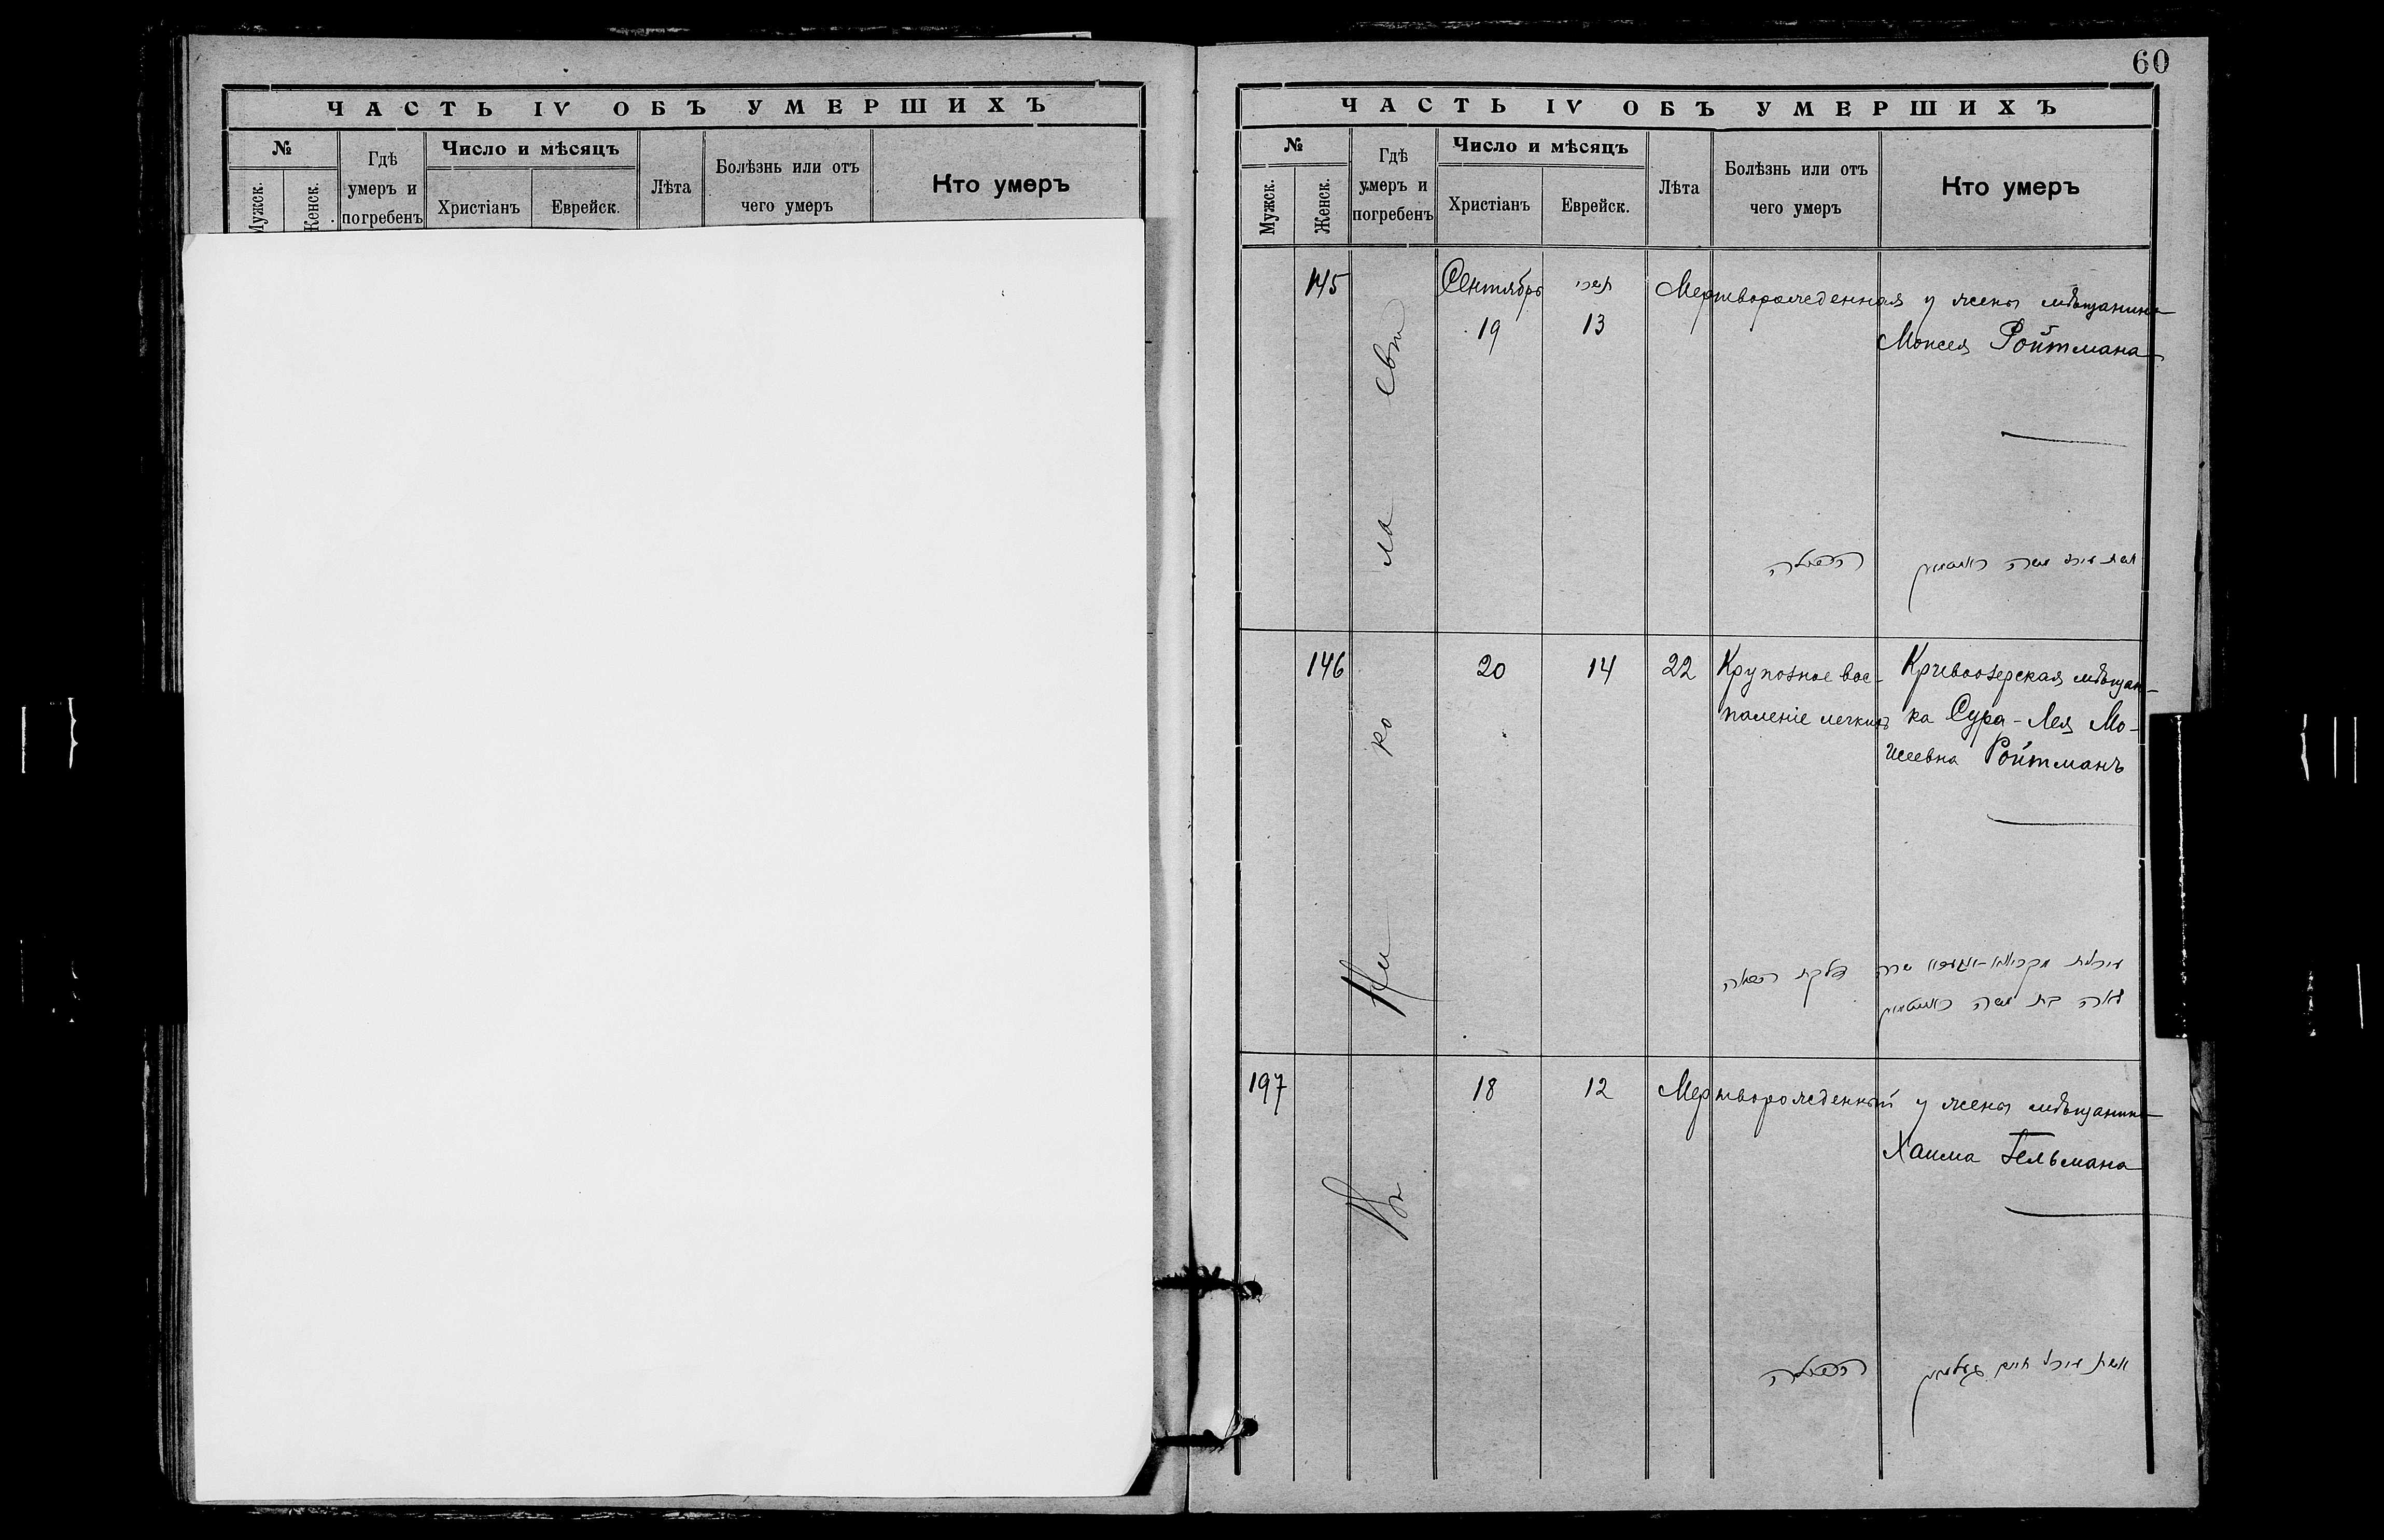 ЧАСТЬ IV ОБЪ УМЕРШИХЪ
№
Мужск.
Женск.
Гдѣ
умеръ и
погребенъ
Число и мѣсяцъ
Христіанъ
Еврейск.
Лѣта
Болѣзнь или отъ
чего умеръ
Кто умеръ
60
ЧАСТЬ IV ОБЪ УМЕРШИХЪ
№
Мужск.
Женск.
Гдѣ
умеръ и
погребенъ
Число и мѣсяцъ
Христіанъ
Еврейск.
Лѣта
Болѣзнь или отъ
чего умеръ
Кто умеръ
Въ Николаевѣ
145 Сентябрь תשרי Мертворожденная у жены мѣщанина
19 13 Моисея Ройтмана
146 20 14 22 Крупозное вос- Кривоозерская мѣщан-
паленіе легкихъ ка Сура-Лея Мо-
исеевна Ройтманъ
דלקת הריאה
לאה בת משה רויטמאן
197 18 12 Мертворожденный у жены мѣщанина
Хаима Гельмана